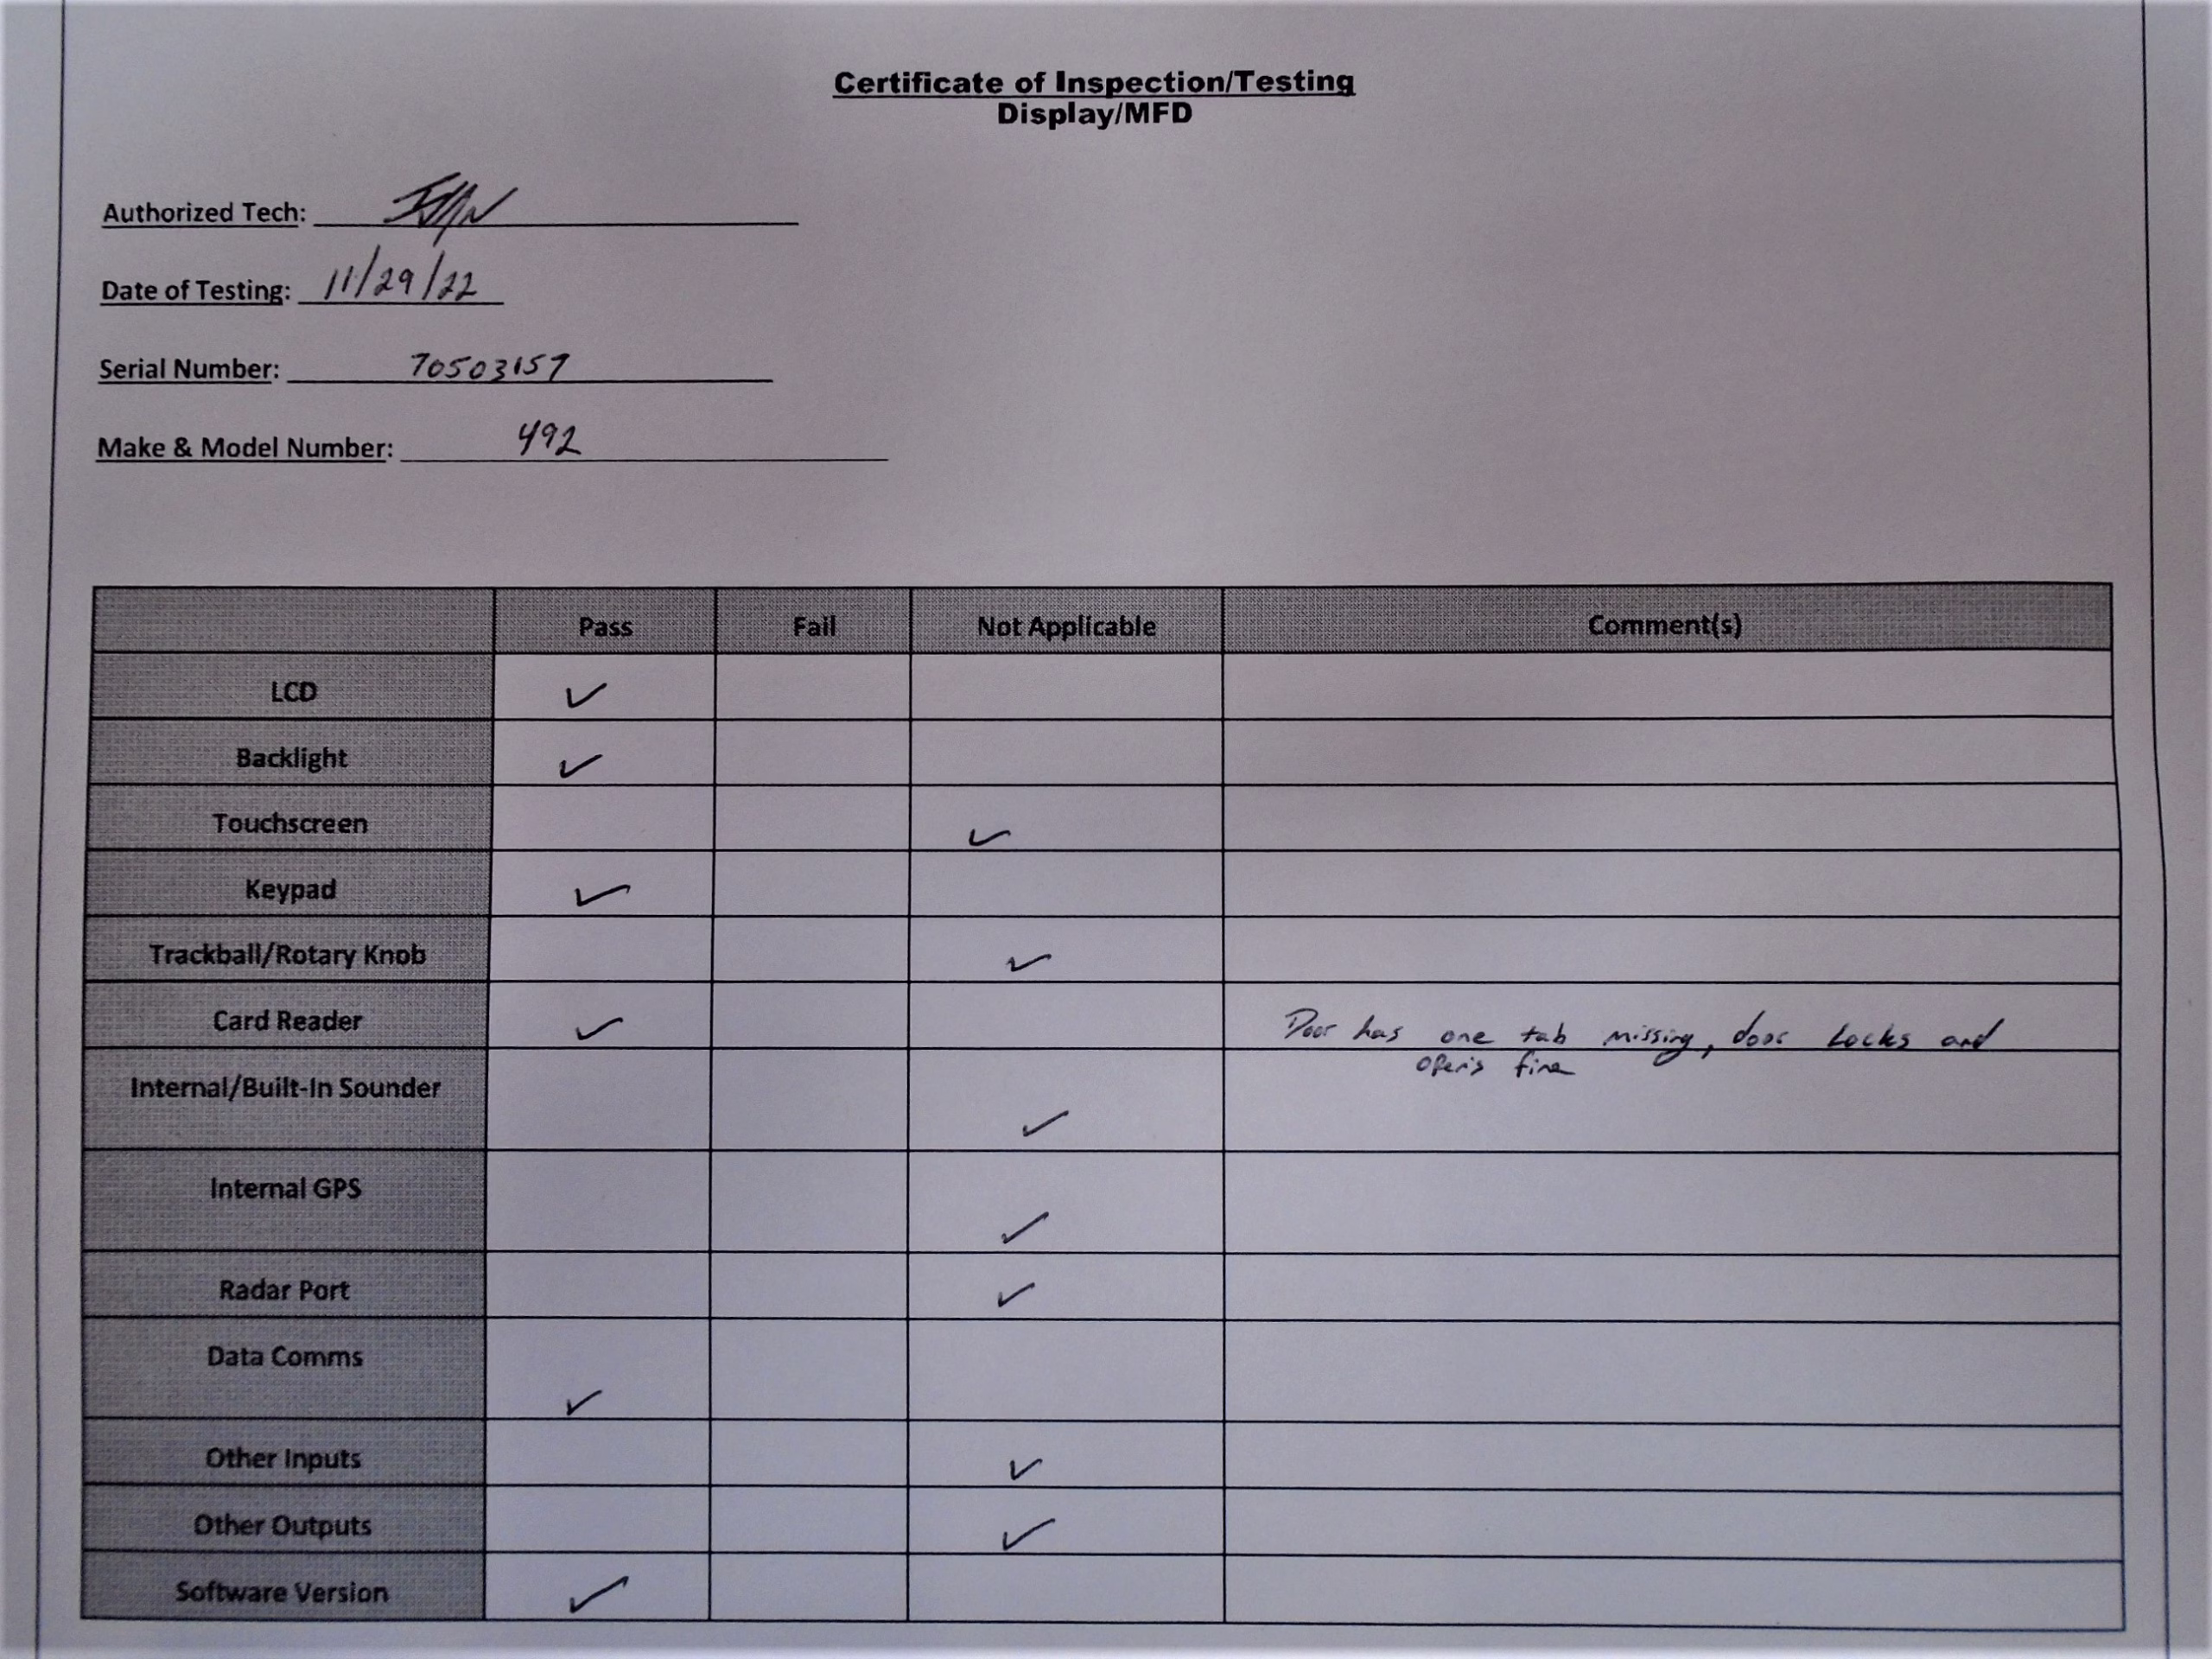 Certificate of Inspection/Testing
Display/MFD
Authorized Tech: IVAN
Date of Testing: 11/29/22
Serial Number: 70503157
Make & Model Number: 492
Pass Fail Not Applicable Comment(s)
LCD ✓
Backlight ✓
Touchscreen ✓
Keypad ✓
Trackball/Rotary Knob ✓
Card Reader ✓ Door has one tab missing, door Locks and
opens fine
Internal/Built-In Sounder ✓
Internal GPS ✓
Radar Port ✓
Data Comms ✓
Other Inputs ✓
Other Outputs ✓
Software Version ✓